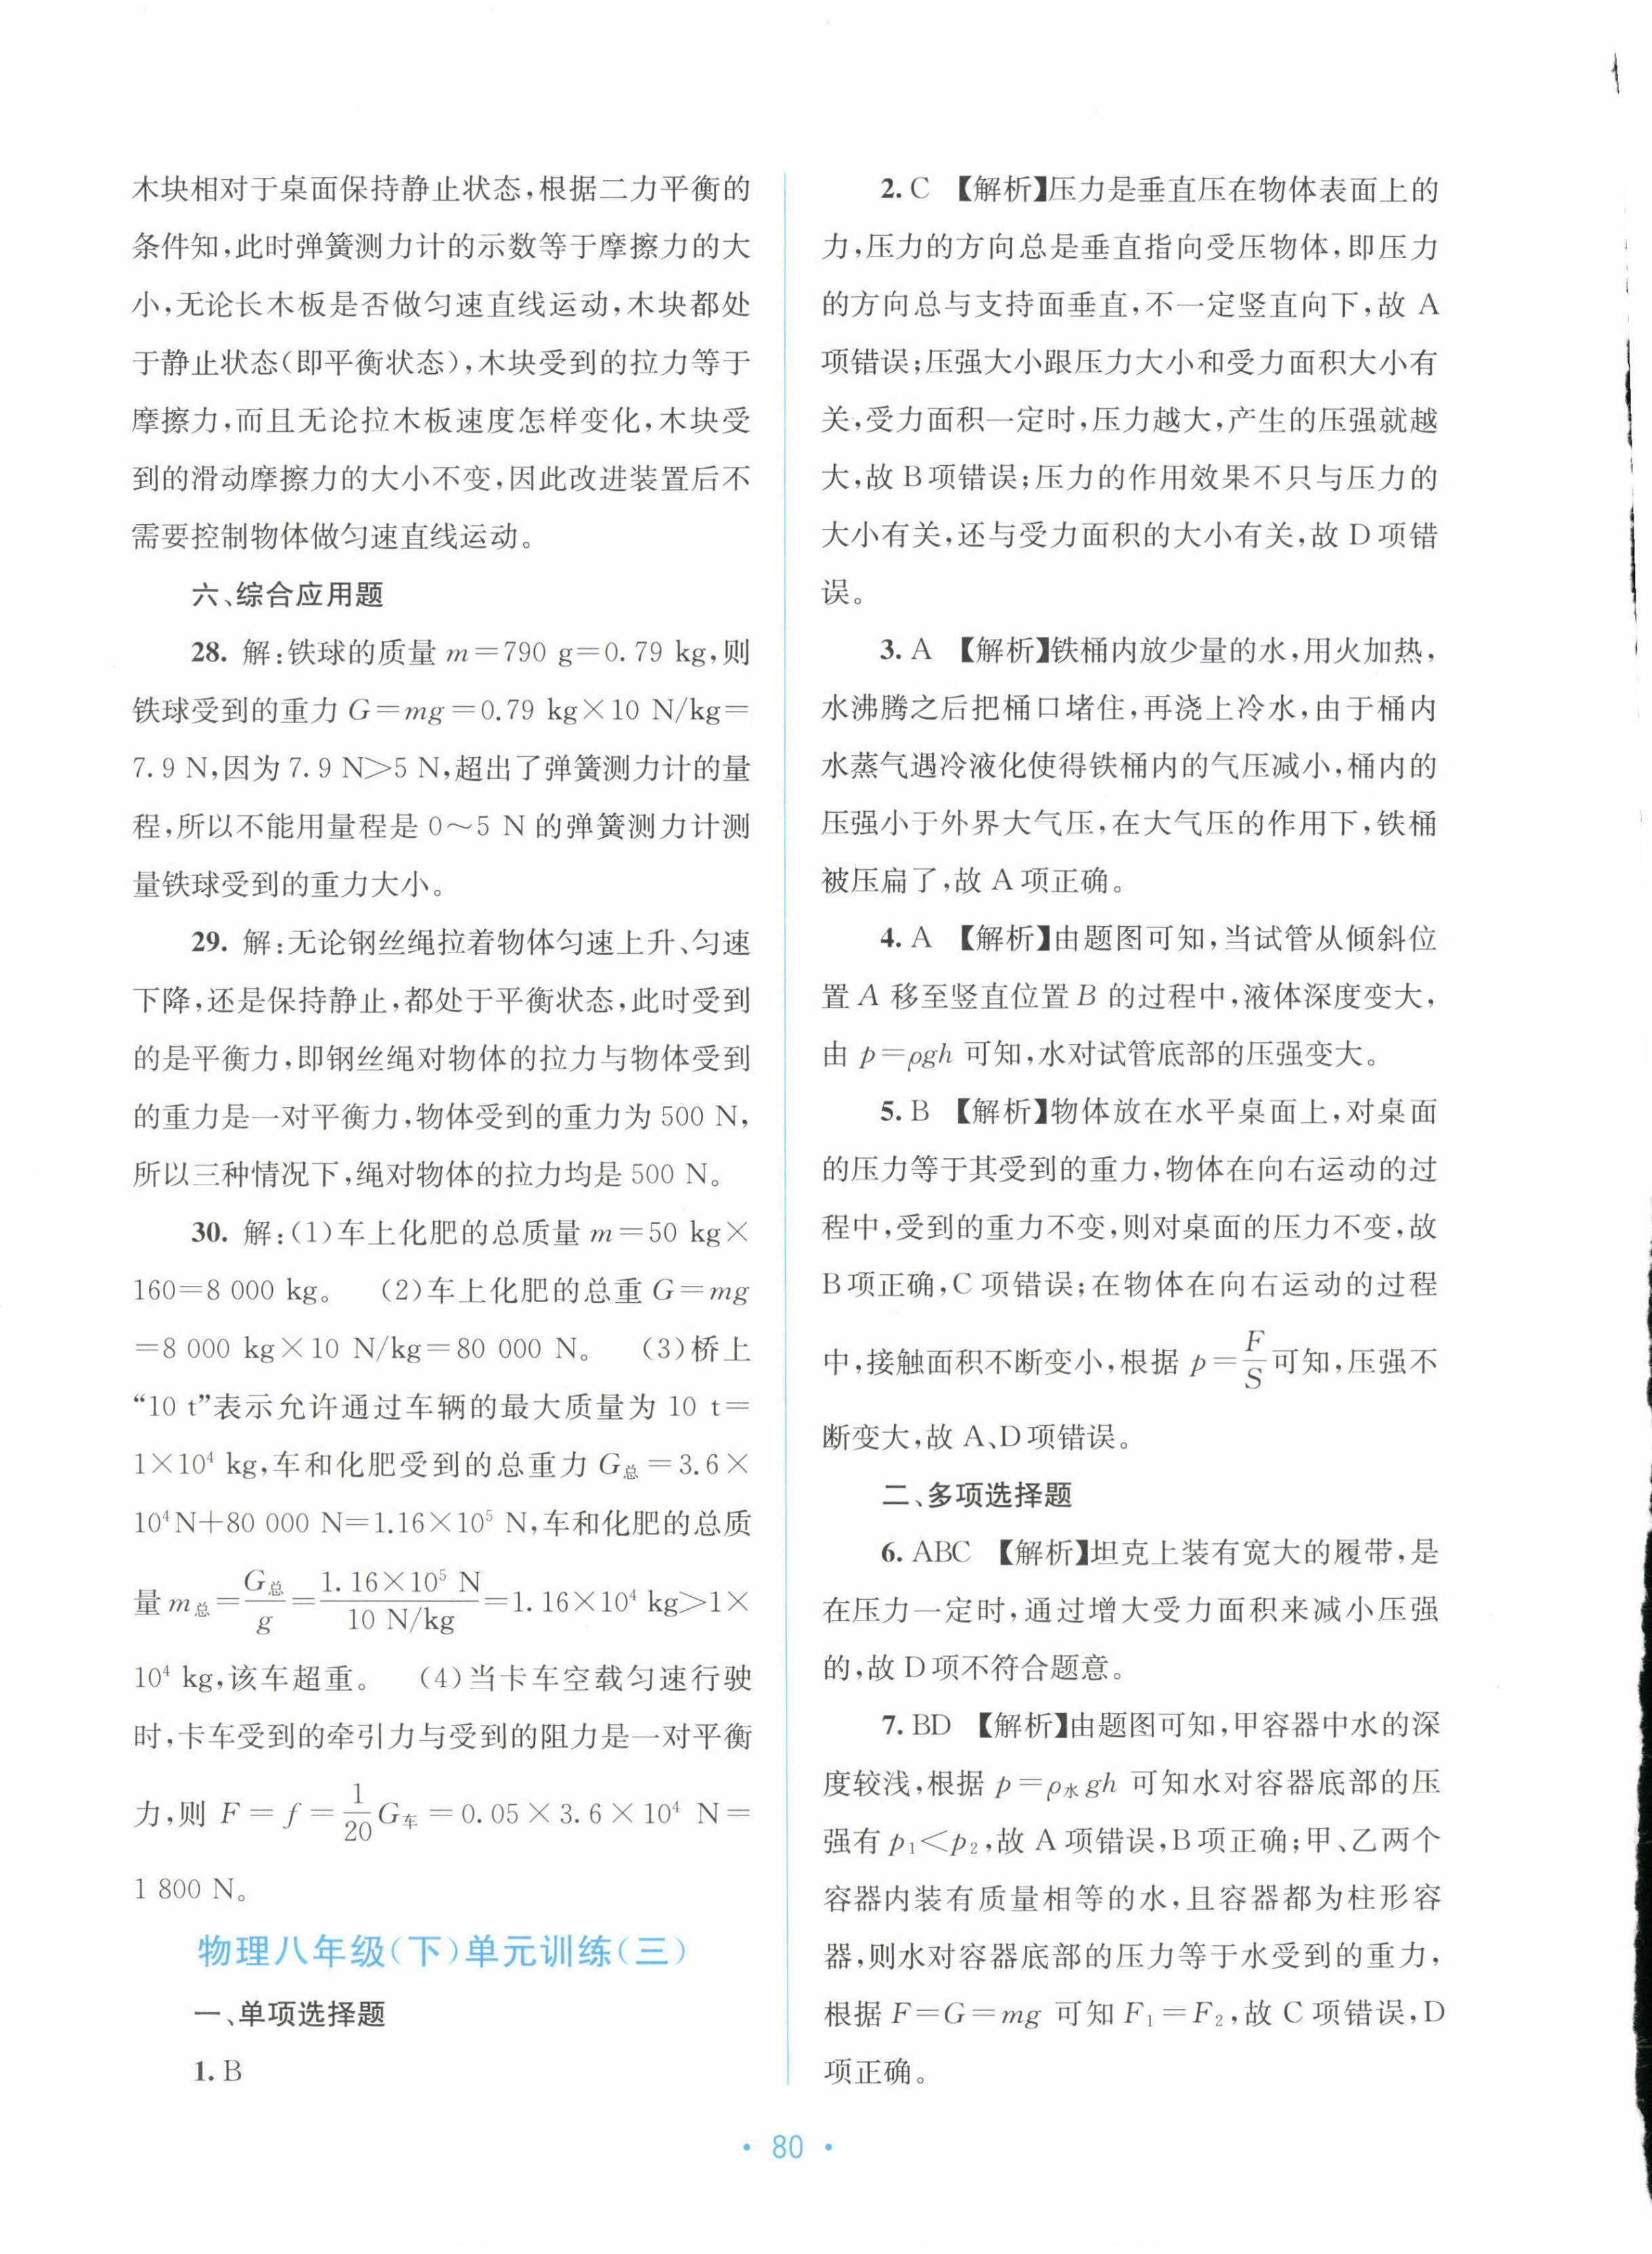 木块相对于桌面保持静止状态,根据二力平衡的
条件知,此时弹簧测力计的示数等于摩擦力的大
小,无论长木板是否做匀速直线运动,木块都处
于静止状态(即平衡状态),木块受到的拉力等于
摩擦力,而且无论拉木板速度怎样变化,木块受
到的滑动摩擦力的大小不变,因此改进装置后不
需要控制物体做匀速直线运动。
六、综合应用题
28. 解:铁球的质量 m=790 g=0.79 kg,则
铁球受到的重力 G=mg=0.79 kg×10 N/kg=
7.9 N,因为 7.9 N>5 N,超出了弹簧测力计的量
程,所以不能用量程是 0～5 N 的弹簧测力计测
量铁球受到的重力大小。
29. 解:无论钢丝绳拉着物体匀速上升、匀速
下降,还是保持静止,都处于平衡状态,此时受到
的是平衡力,即钢丝绳对物体的拉力与物体受到
的重力是一对平衡力,物体受到的重力为 500 N,
所以三种情况下,绳对物体的拉力均是 500 N。
30. 解:(1)车上化肥的总质量 m=50 kg×
160=8 000 kg。 (2)车上化肥的总重 G=mg
=8 000 kg×10 N/kg=80 000 N。 (3)桥上
“10 t”表示允许通过车辆的最大质量为 10 t=
1×10⁴ kg,车和化肥受到的总重力 G总=3.6×
10⁴N+80 000 N=1.16×10⁵ N,车和化肥的总质
量 m总=G总/g=1.16×10⁵ N/10 N/kg=1.16×10⁴ kg>1×
10⁴ kg,该车超重。 (4)当卡车空载匀速行驶
时,卡车受到的牵引力与受到的阻力是一对平衡
力,则 F=f=1/20G车=0.05×3.6×10⁴ N=
1 800 N。
物理八年级(下)单元训练(三)
一、单项选择题
1. B
2. C 【解析】压力是垂直压在物体表面上的
力,压力的方向总是垂直指向受压物体,即压力
的方向总与支持面垂直,不一定竖直向下,故 A
项错误;压强大小跟压力大小和受力面积大小有
关,受力面积一定时,压力越大,产生的压强就越
大,故 B项错误;压力的作用效果不只与压力的
大小有关,还与受力面积的大小有关,故 D项错
误。
3. A 【解析】铁桶内放少量的水,用火加热,
水沸腾之后把桶口堵住,再浇上冷水,由于桶内
水蒸气遇冷液化使得铁桶内的气压减小,桶内的
压强小于外界大气压,在大气压的作用下,铁桶
被压扁了,故 A项正确。
4. A 【解析】由题图可知,当试管从倾斜位
置 A 移至竖直位置 B 的过程中,液体深度变大,
由 p=ρgh 可知,水对试管底部的压强变大。
5. B 【解析】物体放在水平桌面上,对桌面
的压力等于其受到的重力,物体在向右运动的过
程中,受到的重力不变,则对桌面的压力不变,故
B项正确,C 项错误;在物体在向右运动的过程
中,接触面积不断变小,根据 p=F/S可知,压强不
断变大,故 A、D项错误。
二、多项选择题
6. ABC 【解析】坦克上装有宽大的履带,是
在压力一定时,通过增大受力面积来减小压强
的,故 D项不符合题意。
7. BD 【解析】由题图可知,甲容器中水的深
度较浅,根据 p=ρ水gh 可知水对容器底部的压
强有 p₁<p₂,故 A 项错误,B项正确;甲、乙两个
容器内装有质量相等的水,且容器都为柱形容
器,则水对容器底部的压力等于水受到的重力,
根据 F=G=mg 可知 F₁=F₂,故 C 项错误,D
项正确。
· 80 ·